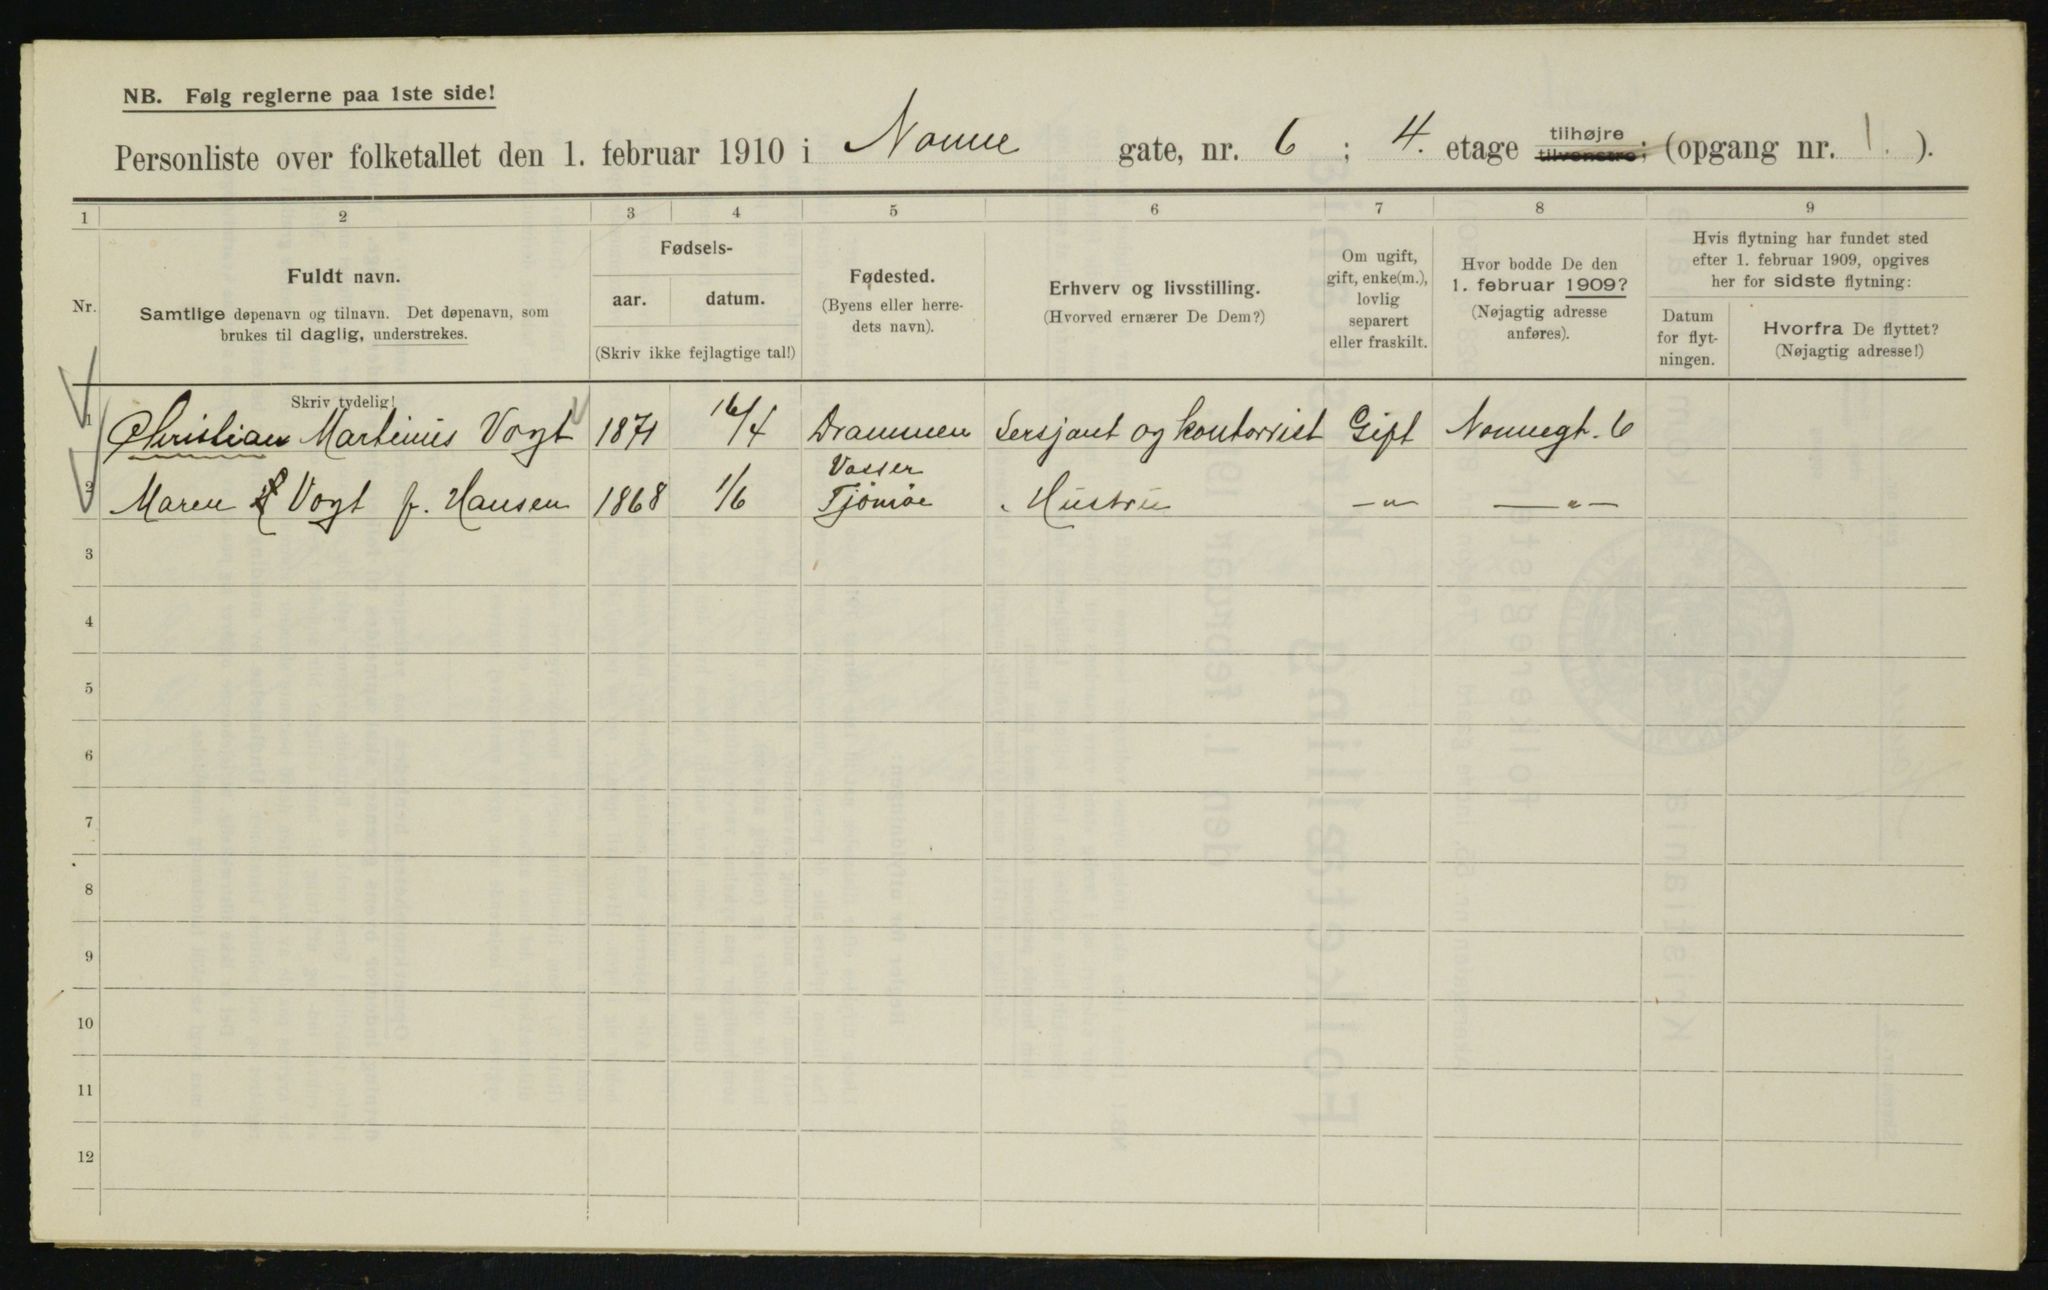 NB. Følg reglerne paa 1ste side!
Personliste over folketallet den 1. februar 1910 i Nonne gate, nr. 6 ; 4. etage tilhøjre tilvenstre; (opgang nr. 1. ).
1 2 3 4 5 6 7 8 9
Nr.
Fuldt navn.
Samtlige døpenavn og tilnavn. Det døpenavn, som
brukes til daglig, understrekes.
Fødsels-
aar. datum.
(Skriv ikke fejlagtige tal!)
Fødested.
(Byens eller herre-
dets navn).
Erhverv og livsstilling.
(Hvorved ernærer De Dem?)
Om ugift,
gift, enke(m.),
lovlig
separert
eller fraskilt.
Hvor bodde De den
1. februar 1909?
(Nøjagtig adresse
anføres).
Hvis flytning har fundet sted
efter 1. februar 1909, opgives
her for sidste flytning:
Datum
for flyt-
ningen.
Hvorfra De flyttet?
(Nøjagtig adresse!)
Skriv tydelig!
1 Christian Martinius Vogt 1871 16/4 Drammen Sersjant og kontorrist Gift Nonnegt. 6
Vasser
2 Maren Vogt f. Hansen 1868 1/6 Tjømøe Hustru —„— —„—
3
4
5
6
7
8
9
10
11
12